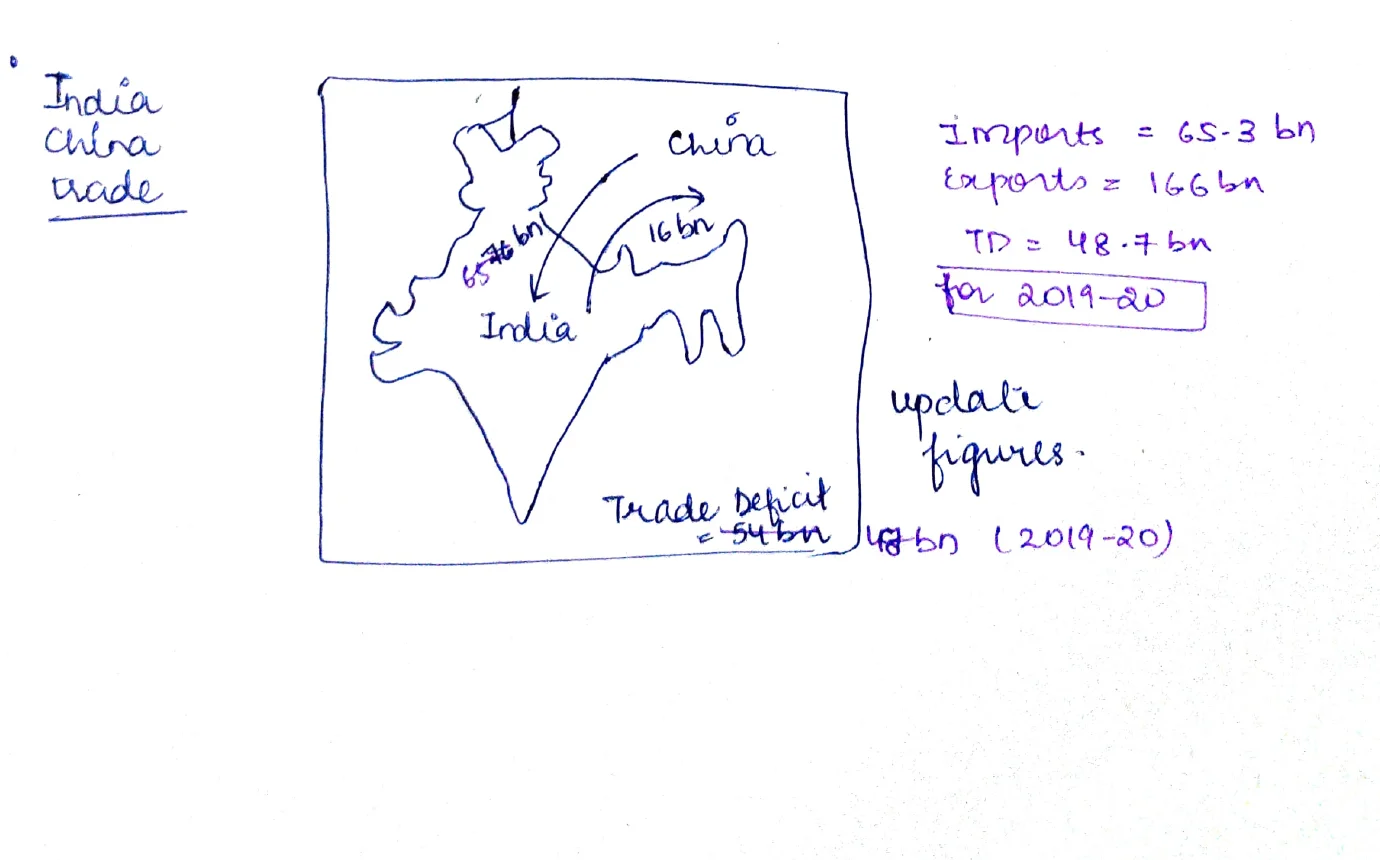 India
China
trade
China
16 bn
65 76 bn
India
Trade Deficit
= 54 bn 48 bn (2019-20)
Imports = 65.3 bn
Exports = 166 bn
TD = 48.7 bn
for 2019-20
update
figures.